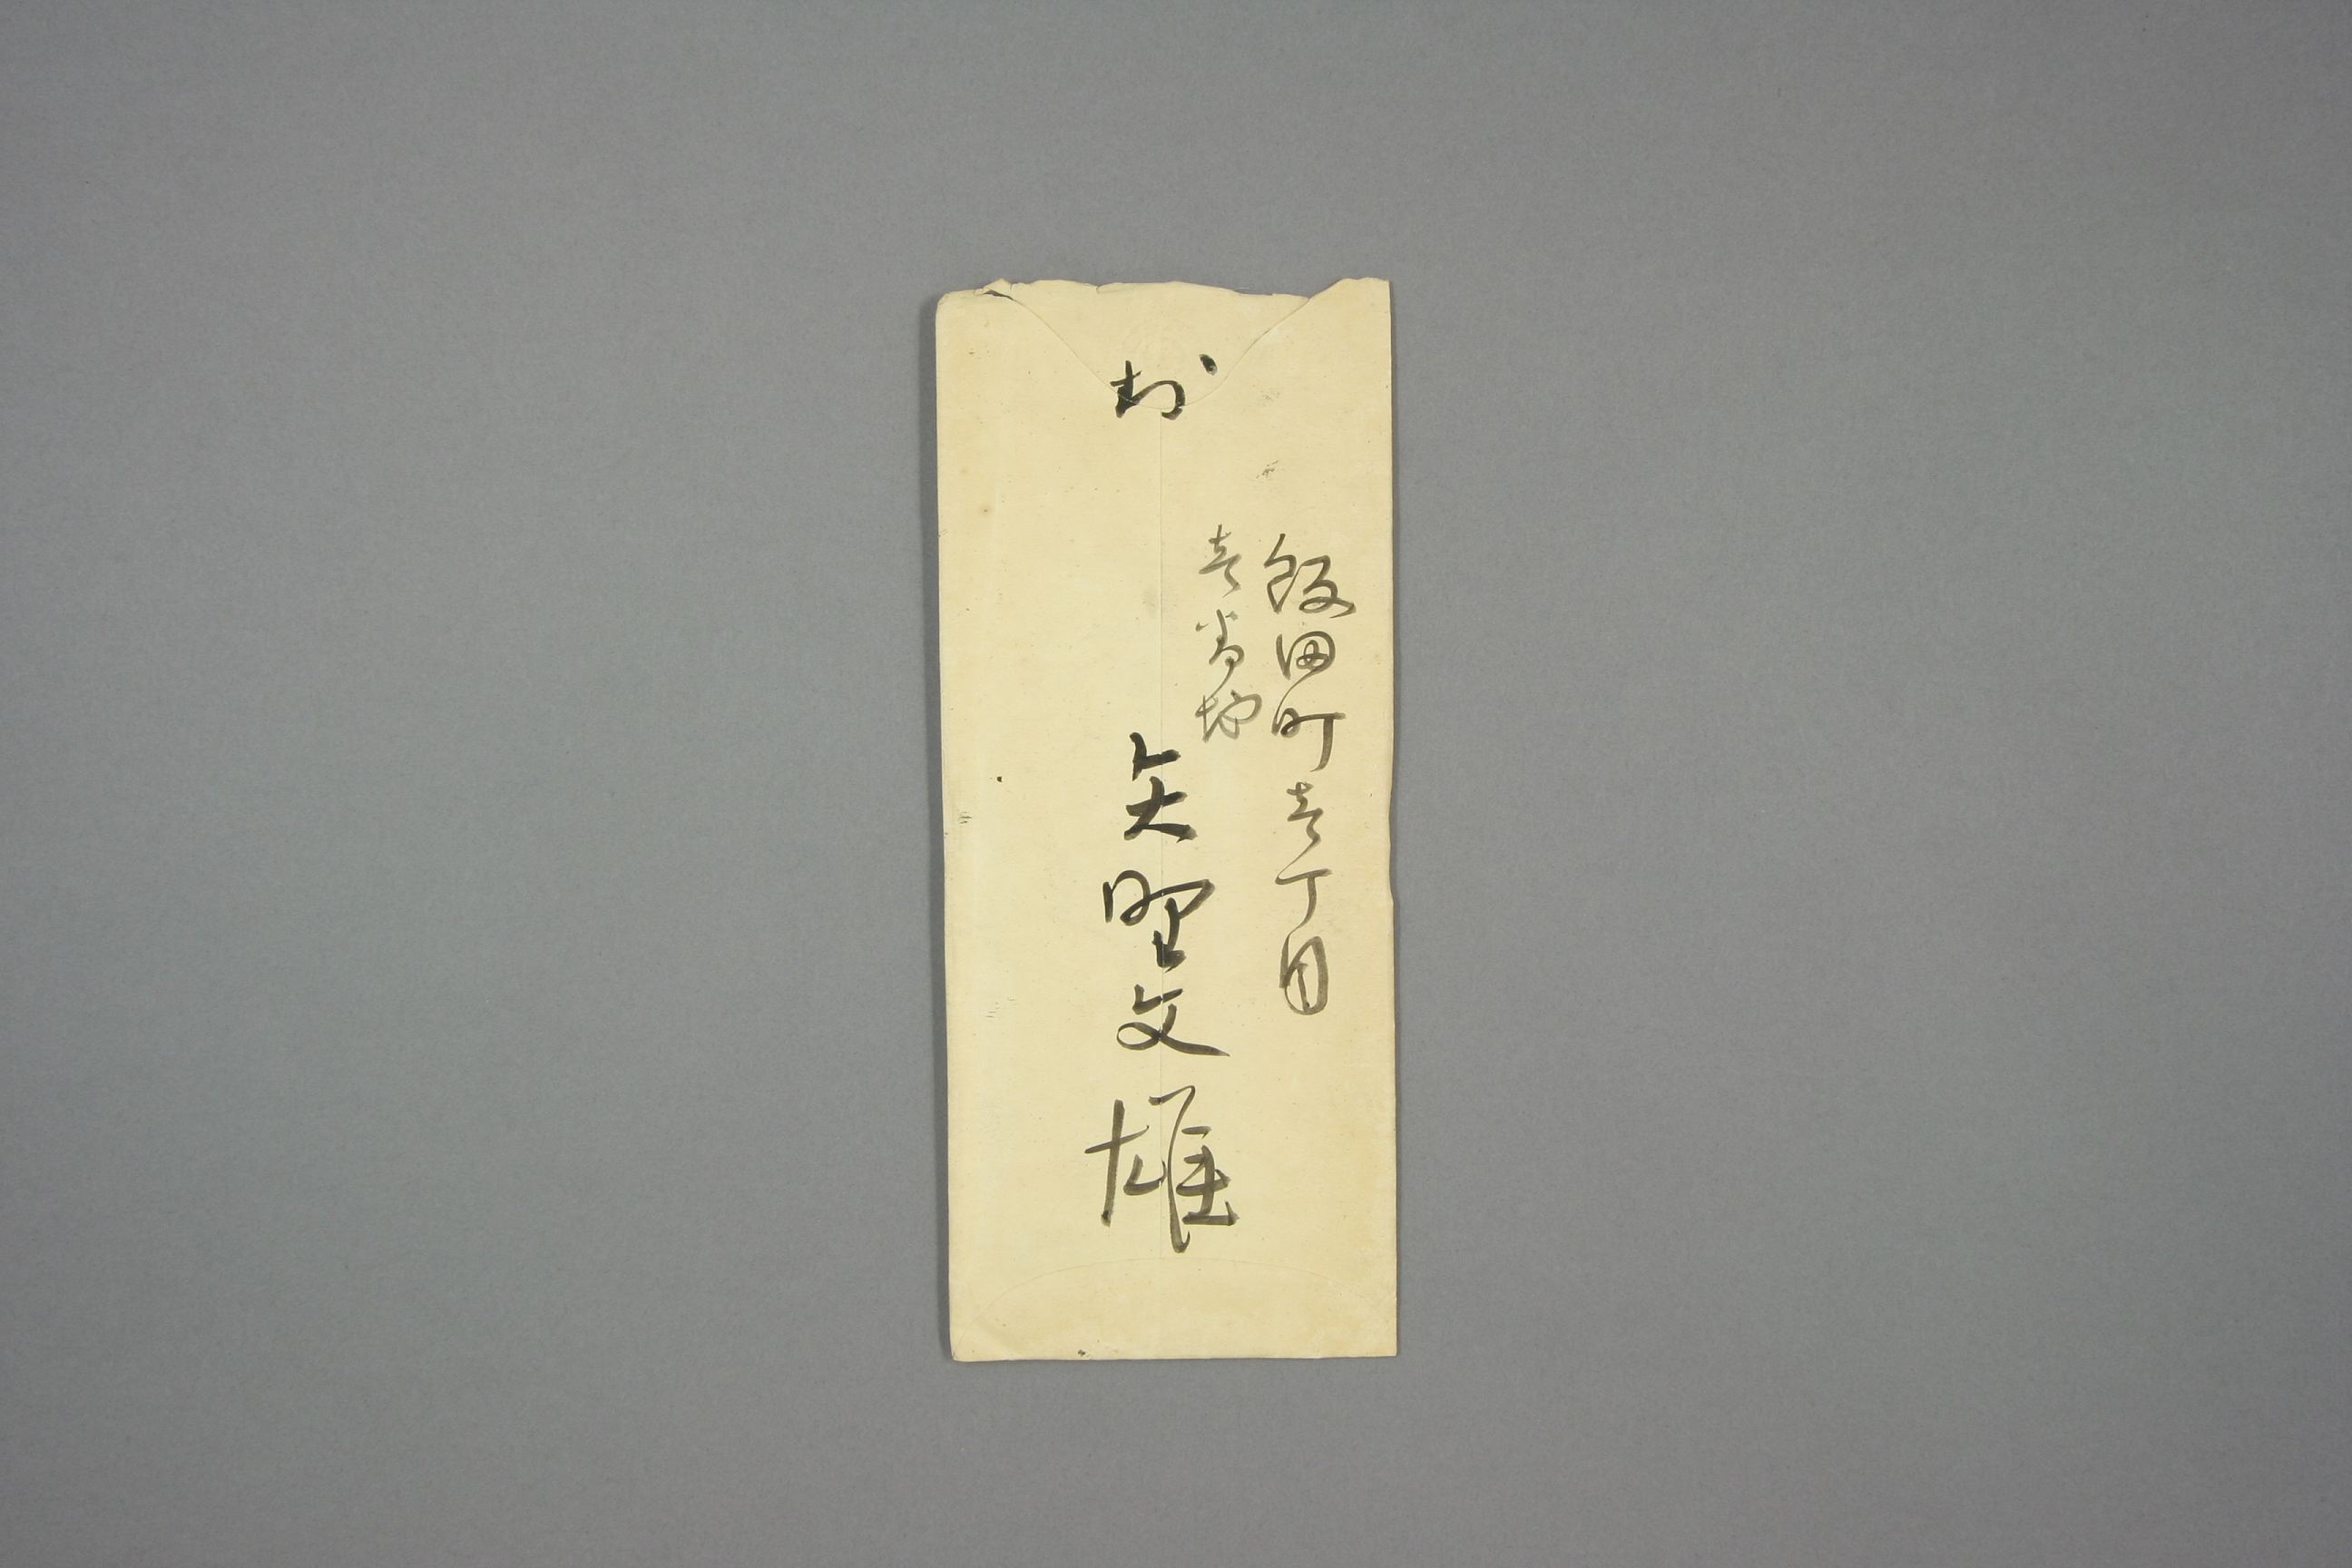 封
飯田町壱丁目
壱番地
矢野文雄